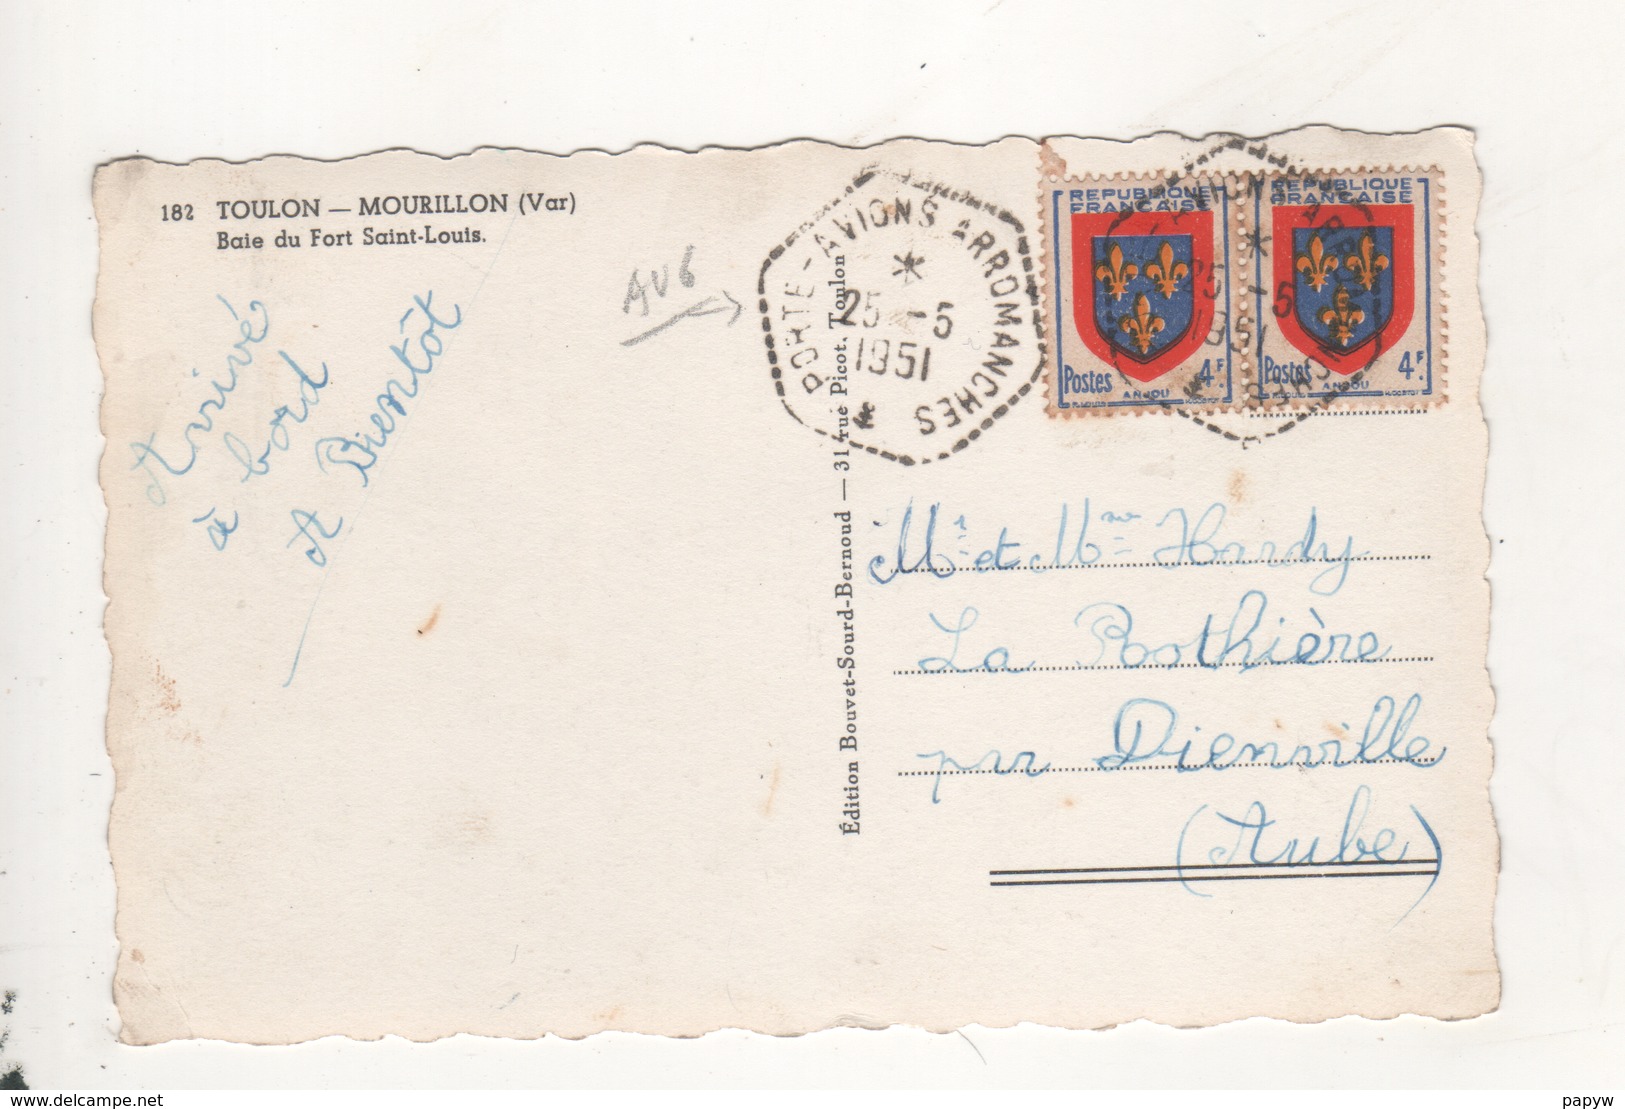 182 TOULON — MOURILLON (Var)
Baie du Fort Saint-Louis.
Arrivé
à bord
A Bientôt
AV6
PORTE-AVIONS ARROMANCHES
25 -5
1951
REPUBLIQUE
FRANÇAISE
Postes 4F.
ANJOU
REPUBLIQUE
FRANÇAISE
Postes 4F.
ANJOU
25 -5
1951
Édition Bouvet-Sourd-Bernoud — 31, rue Picot, Toulon
Mr et Mme Hardy
La Rothière
par Dienville
(Aube)
delcampe.net
papyw